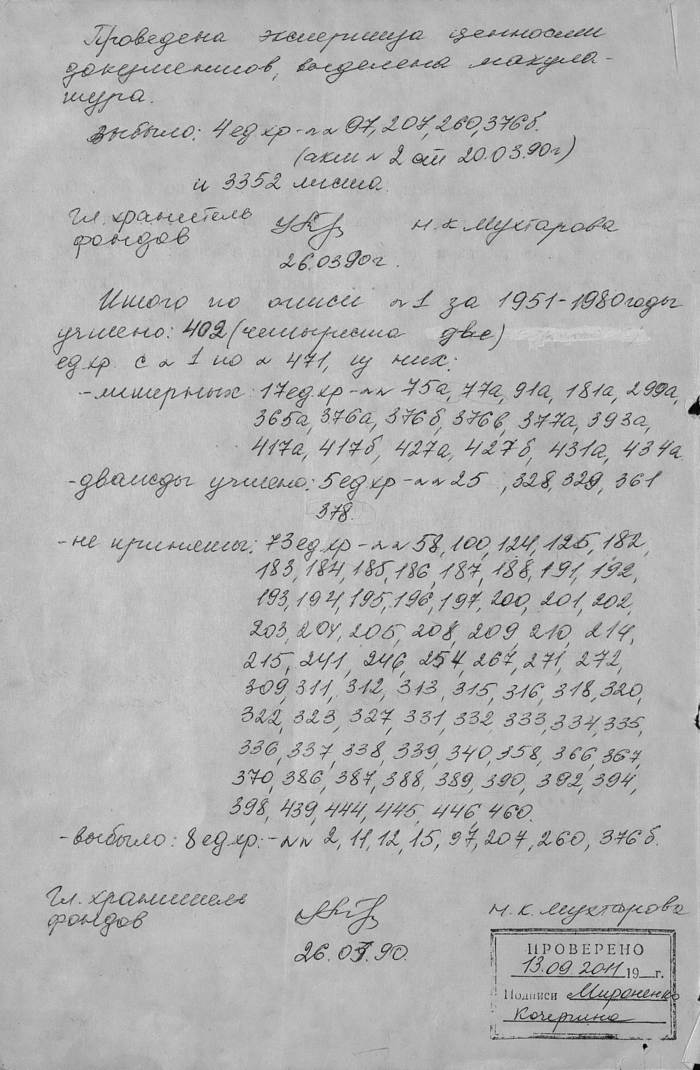 Проведена экспертиза ценности
документов, выделена макула-
тура.
Выбыло: 4 ед хр - №№ 97, 207, 260, 376б.
(акт № 2 от 20.03.90г)
и 3352 листа.
гл. хранитель
фондов
Н.К. Мухтарова
26.03.90г.
Итого по описи № 1 за 1951-1980 годы
учтено: 402 (четыреста две)
ед хр. с № 1 по № 471, из них:
- литерных: 17 ед хр - №№ 75а, 77а, 91а, 181а, 299а,
365а, 376а, 376б, 376в, 377а, 393а,
417а, 417б, 427а, 427б, 431а, 434а
- дважды учтено: 5 ед хр - №№ 25, 328, 329, 361
378.
- не приняты: 73 ед хр - №№ 58, 100, 124, 125, 182,
183, 184, 185, 186, 187, 188, 191, 192,
193, 194, 195, 196, 197, 200, 201, 202,
203, 204, 205, 208, 209 210, 214,
215, 241, 246, 254, 267, 271, 272,
309, 311, 312, 313, 315, 316, 318, 320,
322, 323, 327, 331, 332, 333, 334, 335,
336, 337, 338, 339, 340, 358, 366, 367,
370, 386, 387, 388, 389, 390, 392, 394,
398, 439, 444, 445, 446, 460.
- выбыло: 8 ед хр. - №№ 2, 11, 12, 15, 97, 207, 260, 376б.
гл. хранитель
фондов
Н.К. Мухтарова
26.03.90.
ПРОВЕРЕНО
13.09 2011 19 г.
Подписи Мироненко
Кочергина